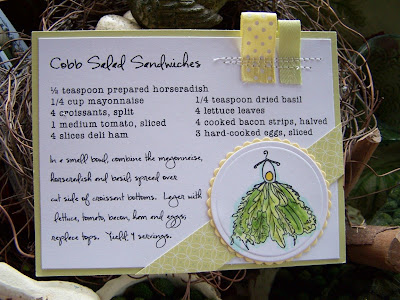 Cobb Salad Sandwiches
⅛ teaspoon prepared horseradish
1/4 cup mayonnaise
4 croissants, split
1 medium tomato, sliced
4 slices deli ham
1/4 teaspoon dried basil
4 lettuce leaves
4 cooked bacon strips, halved
3 hard-cooked eggs, sliced
In a small bowl, combine the mayonnaise,
horseradish and basil; spread over
cut side of croissant bottoms. Layer with
lettuce, tomato, bacon, ham and eggs;
replace tops. Yield 4 servings.